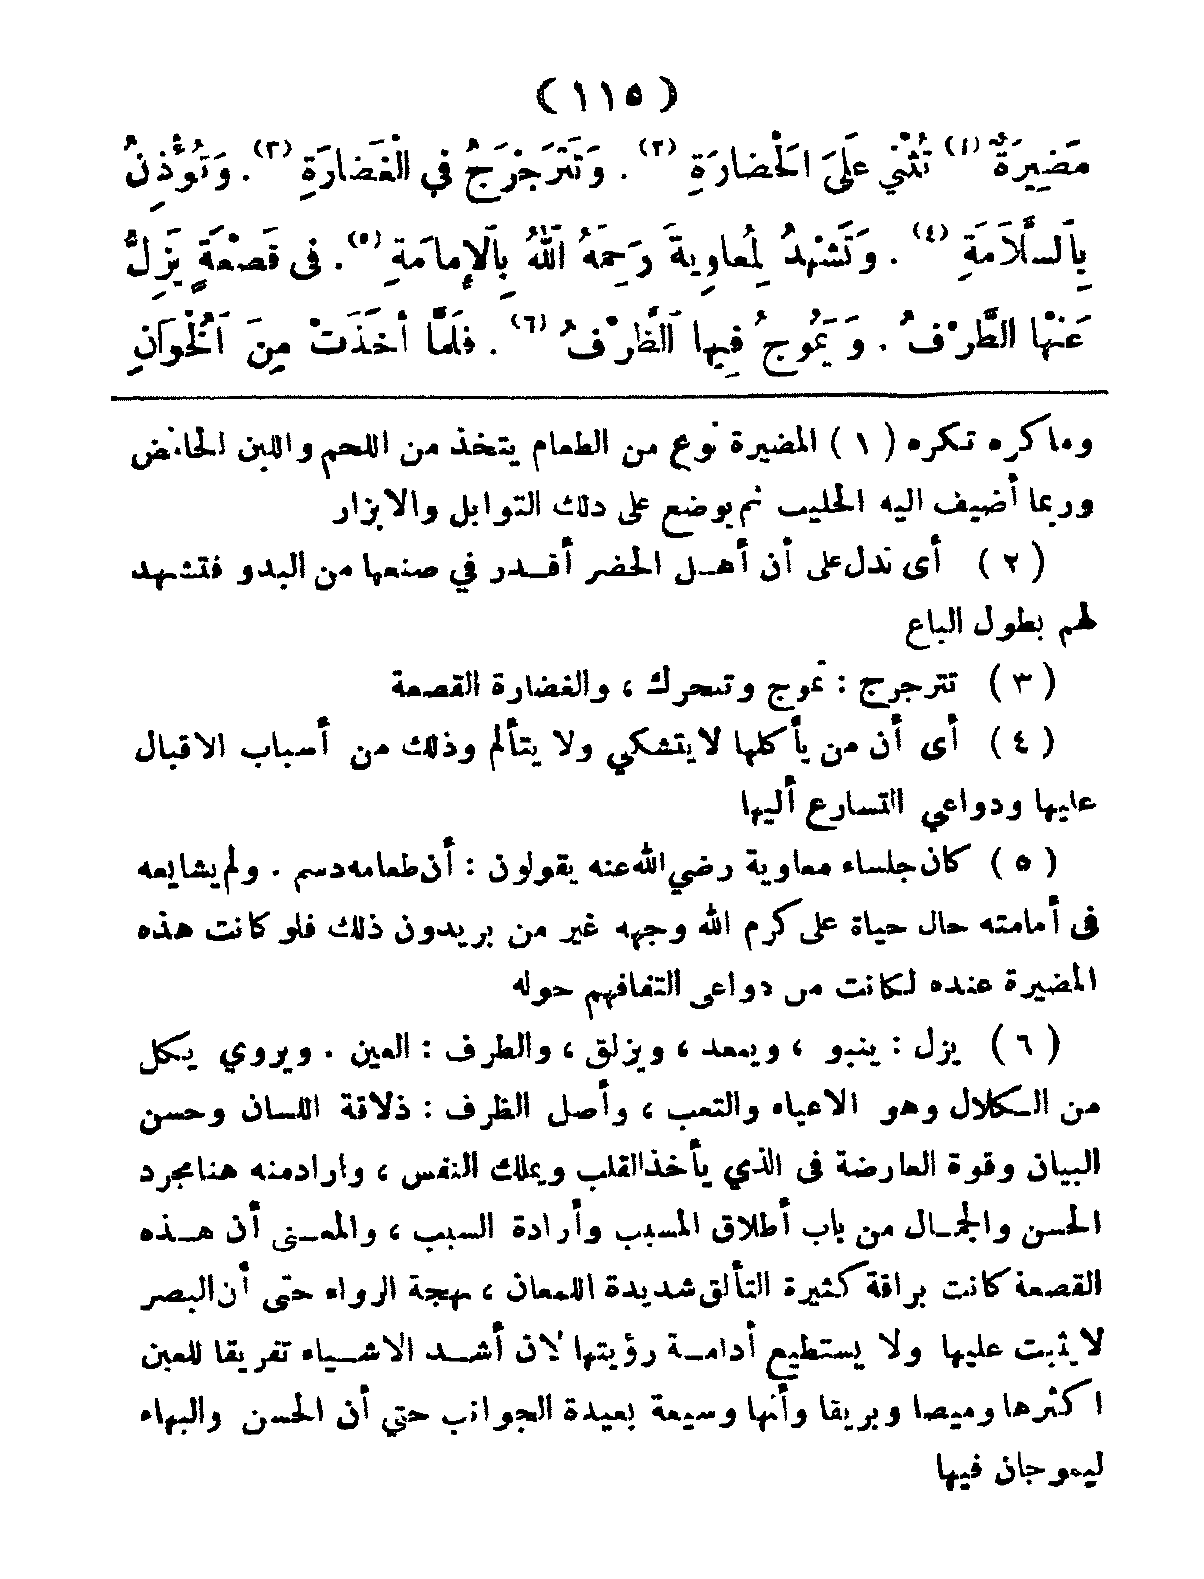 ( ١١٥ )
مَضِيرَةٌ (١) تُثْنِي عَلَىَ الْحَضارَةِ (٢) . وَتَتَرَجْرَجُ فِي الْغَضَارَةِ (٣) . وَتُؤْذِنُ
بِالسَّلاَمَةِ (٤) . وَتَشْهَدُ لِمُعاوِيةَ رَحِمَهُ اللهُ بِالإِمامَةِ (٥) . فِى قَصْعَةٍ يَزِلُّ
عَنْها الطَّرْفُ . وَ يَمُوجُ فِيها الظَّرْفُ (٦) . فَلَمَّا أخَذَتْ مِنَ الْخُوَانِ
وما كره تكره ( ١ ) المضيرة نوع من الطعام يتخذ من اللحم واللبن الحامض
وربما أضيف اليه الحليب ثم يوضع على ذلك التوابل والابزار
( ٢ ) أى تدل على أن أهـل الحضر أقـدر في صنعها من البدو فتشهد
لهم بطول الباع
( ٣ ) تترجرج : تموج وتتحرك ، والغضارة القصعة
( ٤ ) أى أن من يأكلها لايتشكي ولا يتألم وذلك من أسباب الاقبال
عليها ودواعي التسارع أليها
( ٥ ) كان جلساء معاوية رضي الله عنه يقولون : أن طعامه دسم . ولم يشايعه
فى أمامته حال حياة على كرم الله وجهه غير من يريدون ذلك فلو كانت هذه
المضيرة عنده لكانت من دواعى التفافهم حوله
( ٦ ) يزل : ينبو ، ويبعد ، ويزلق ، والطرف : العين . ويروي يكل
من الـكلال وهو الاعياء والتعب ، وأصل الظرف : ذلاقة اللسان وحسن
البيان وقوة العارضة فى الذي يأخذ القلب ويملك النفس ، وارادمنه هنا مجرد
الحسن والجمـال من باب أطلاق المسبب وأرادة السبب ، والمعـنى أن هـذه
القصعة كانت براقة كثيرة التألق شديدة اللمعان ، بهجة الرواء حتى أن البصر
لايثبت عليها ولا يستطيع أدامـة رؤيتها لان أشـد الاشـياء تفريقا للعين
اكثرها وميصا وبريقا وأنها وسيعة بعيدة الجوانب حتي أن الحسن والبهاء
ليموجان فيها